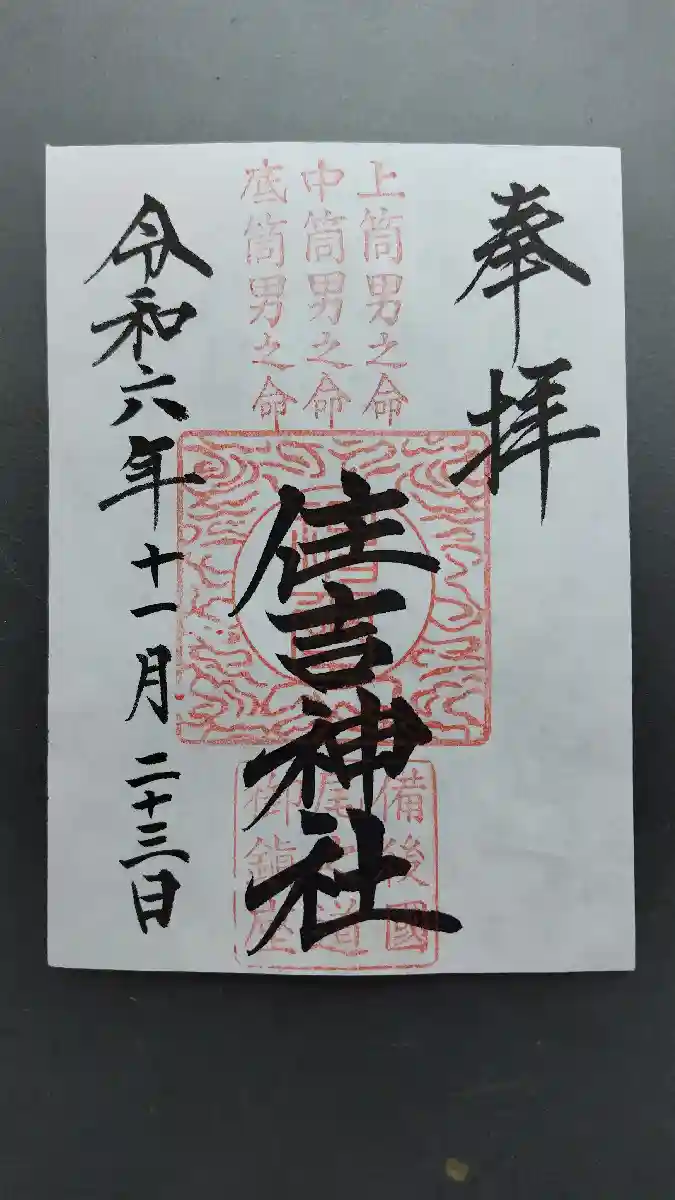 奉拝
上筒男之命
中筒男之命
底筒男之命
住吉神社
備後國
尾道
御鎮座
令和六年十一月二十三日